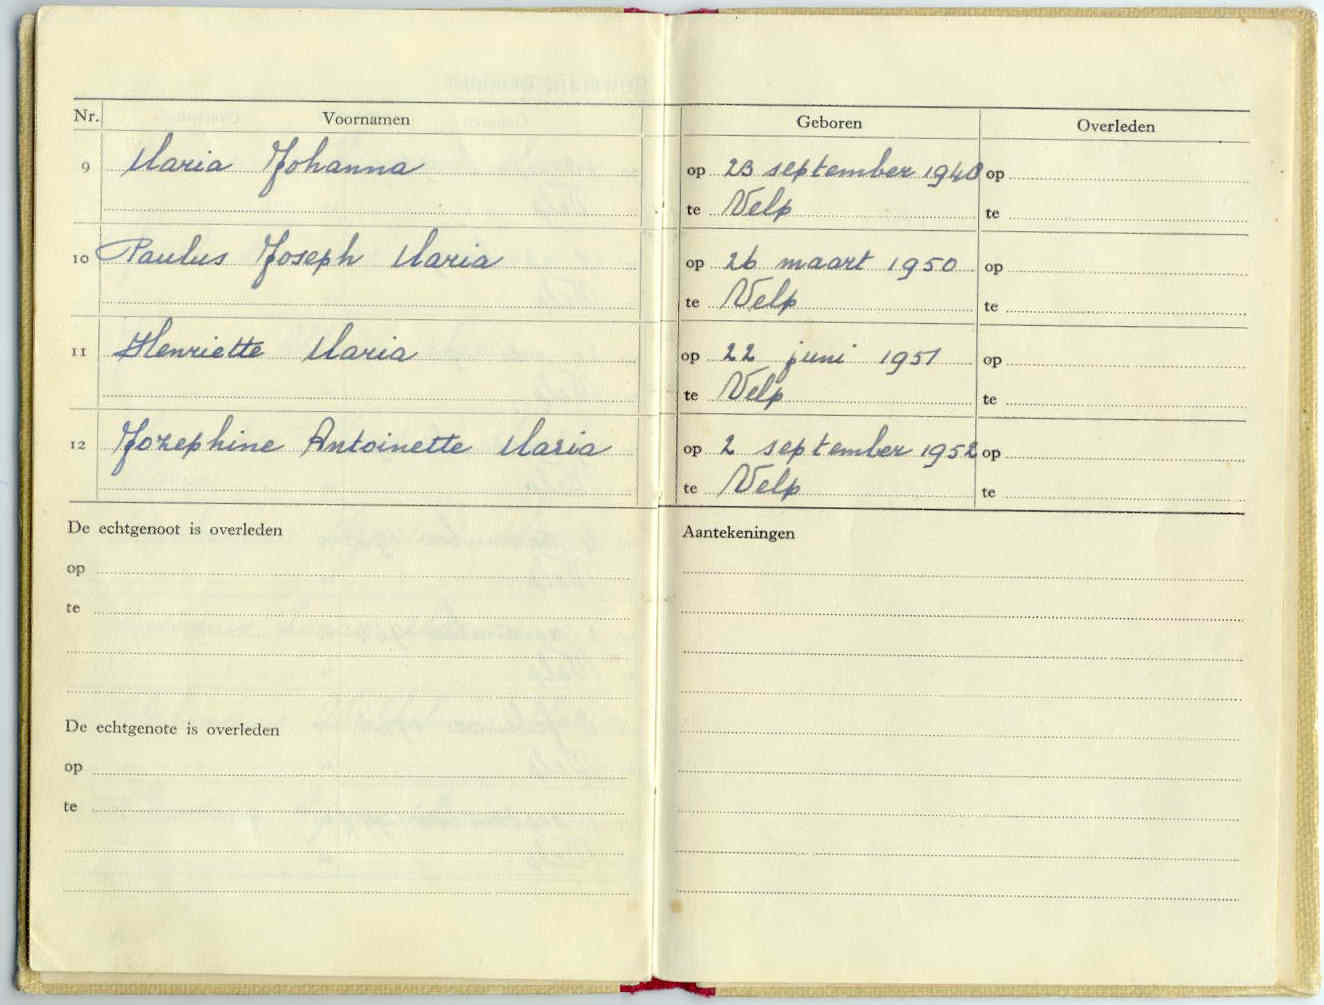 Nr. Voornamen Geboren Overleden
9 Maria Johanna op 23 september 1948 op
te Velp te
10 Paulus Joseph Maria op 26 maart 1950 op
te Velp te
11 Henriette Maria op 22 juni 1951 op
te Velp te
12 Jozephine Antoinette Maria op 2 september 1952 op
te Velp te
De echtgenoot is overleden
op
te
De echtgenote is overleden
op
te
Aantekeningen